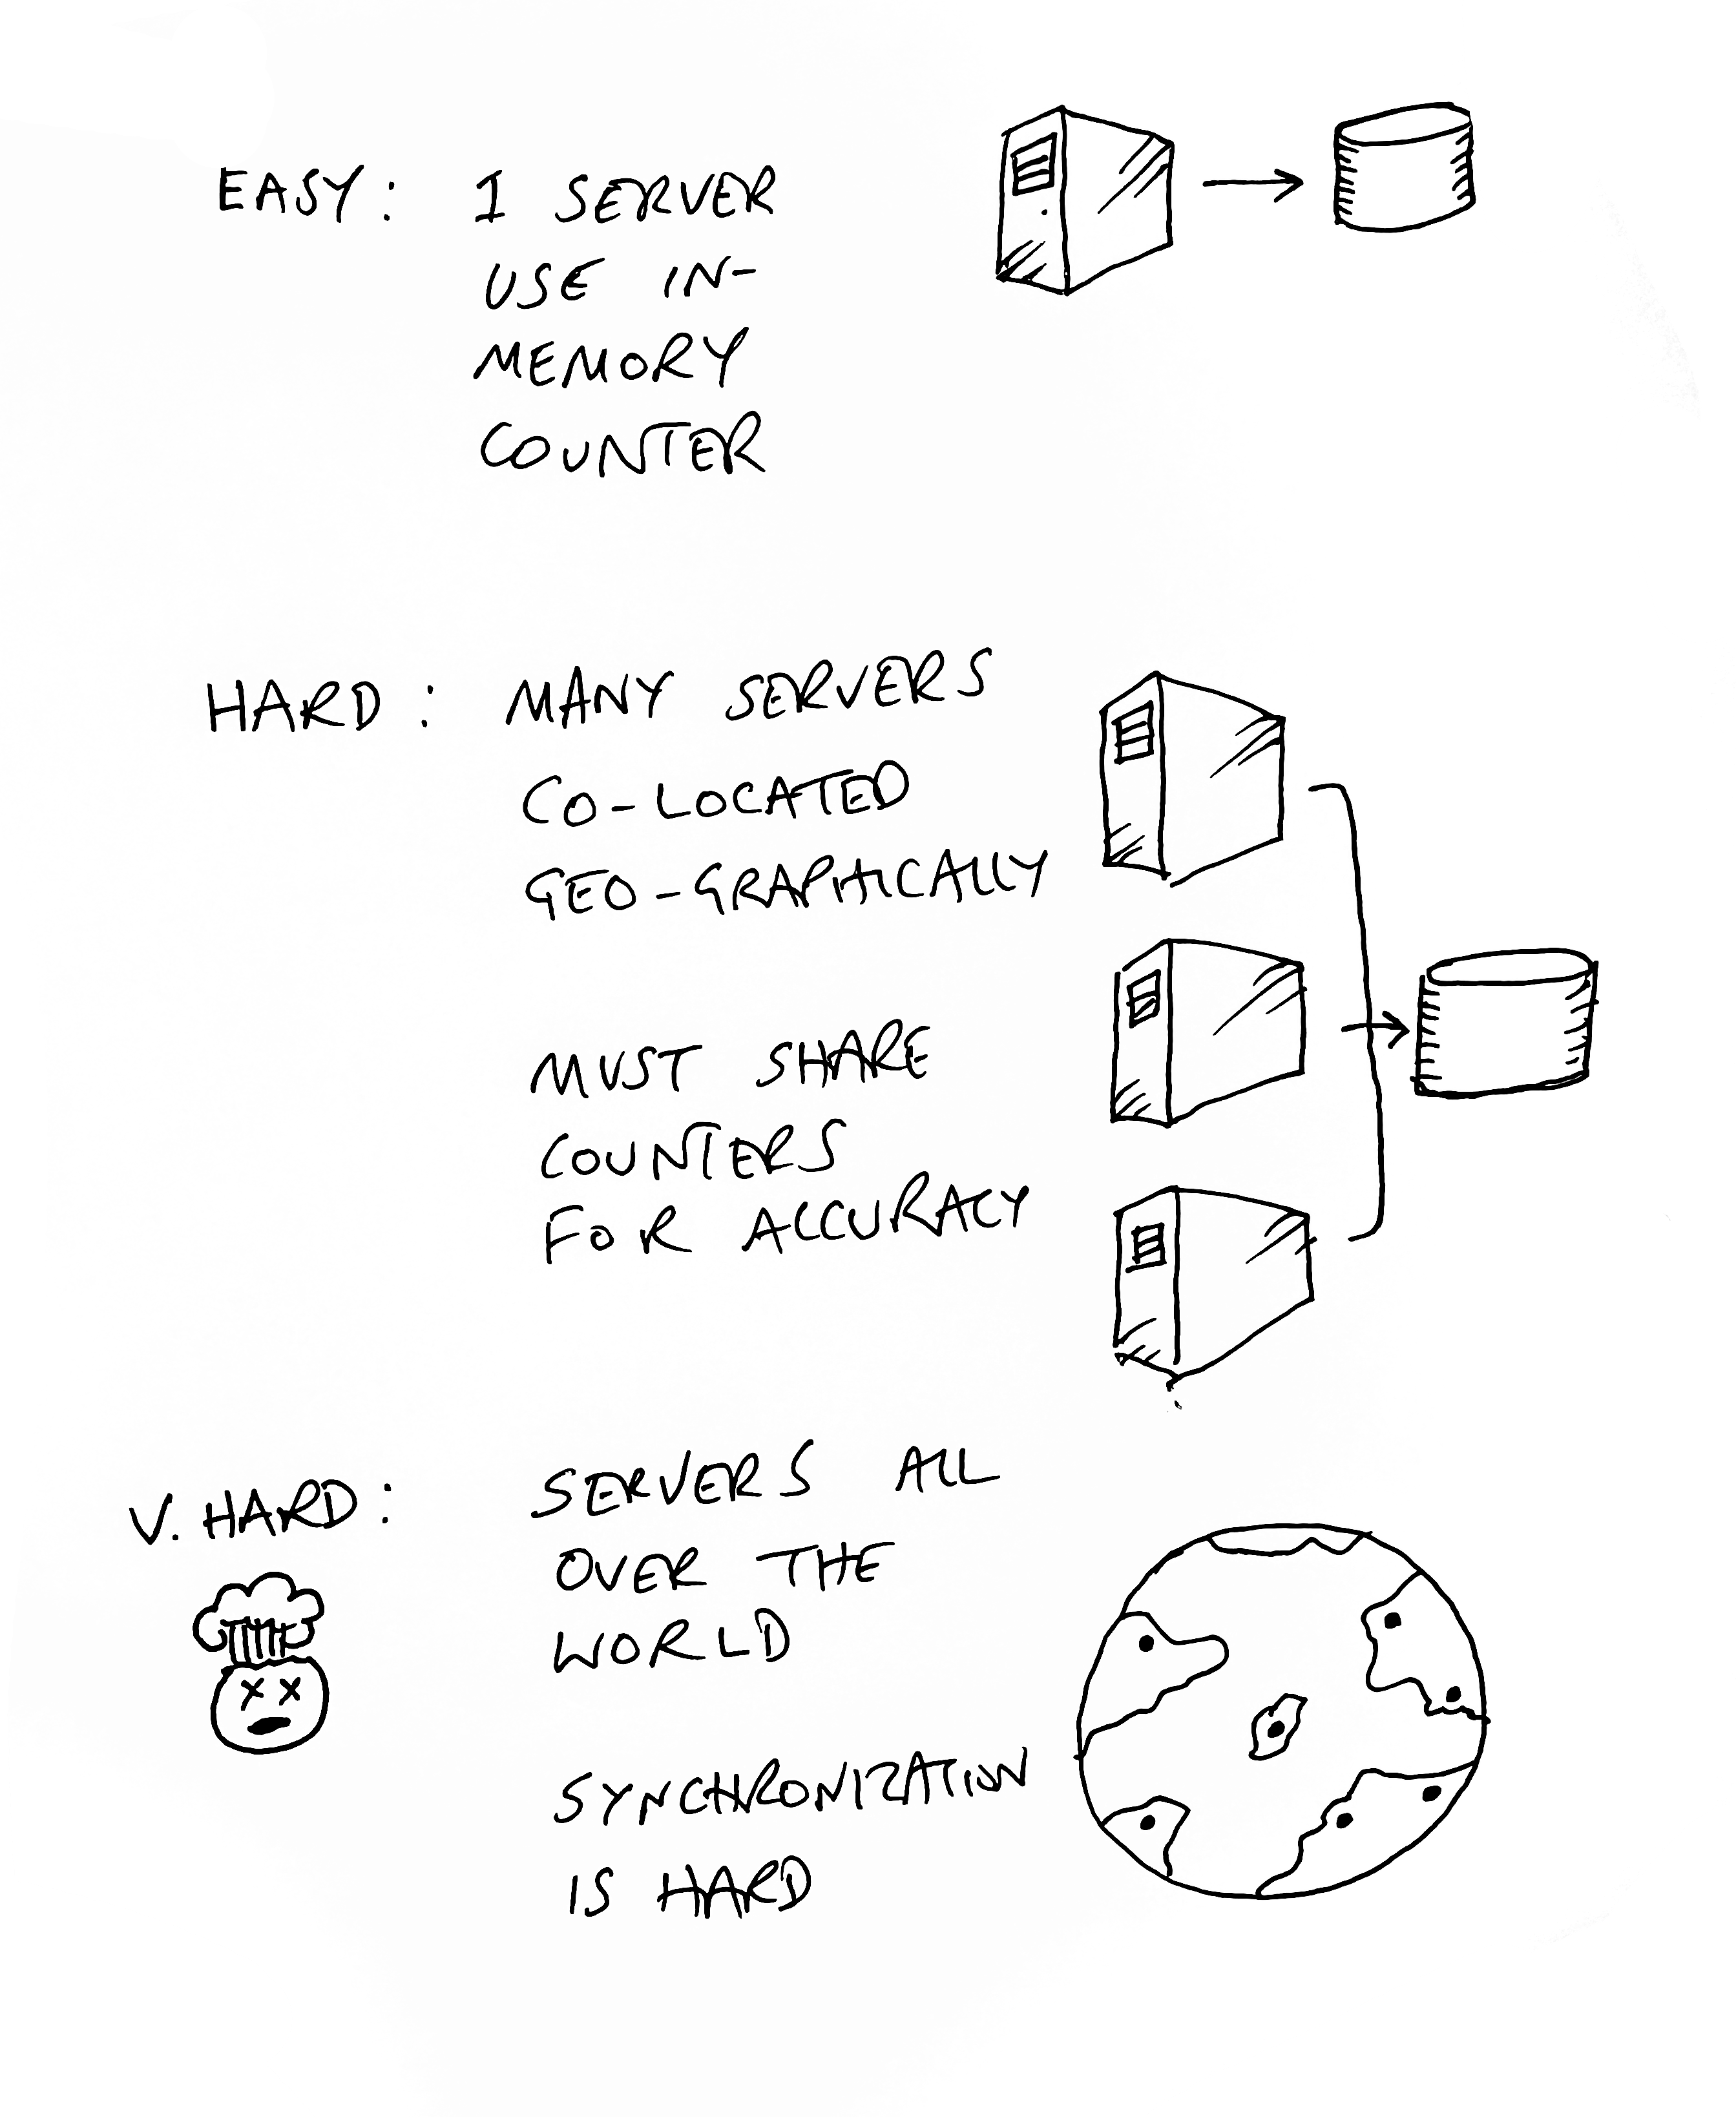 EASY: 1 SERVER
USE IN-
MEMORY
COUNTER
HARD: MANY SERVERS
CO-LOCATED
GEO-GRAPHICALLY
MUST SHARE
COUNTERS
FOR ACCURACY
V. HARD: SERVERS ALL
OVER THE
WORLD
SYNCHRONIZATION
IS HARD